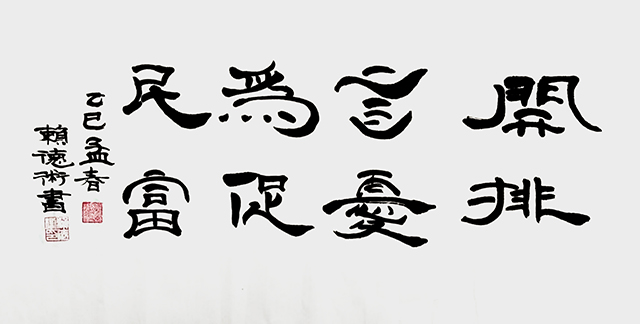 開言為民
排憂促富
乙巳孟春
賴德術書